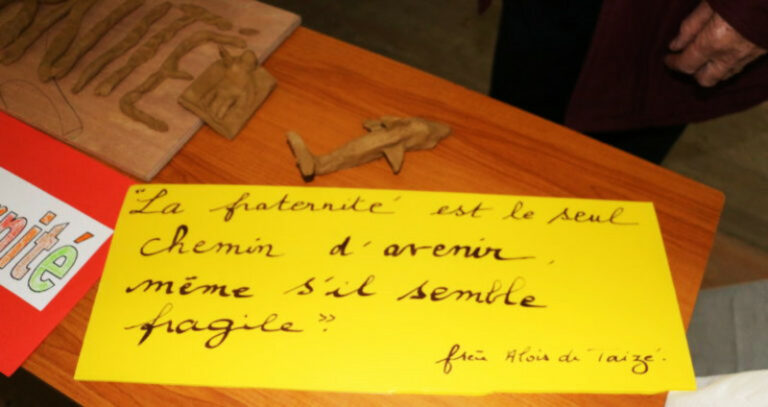 "La fraternité est le seul
chemin d'avenir,
même s'il semble
fragile".
frère Alois de Taizé.
nité